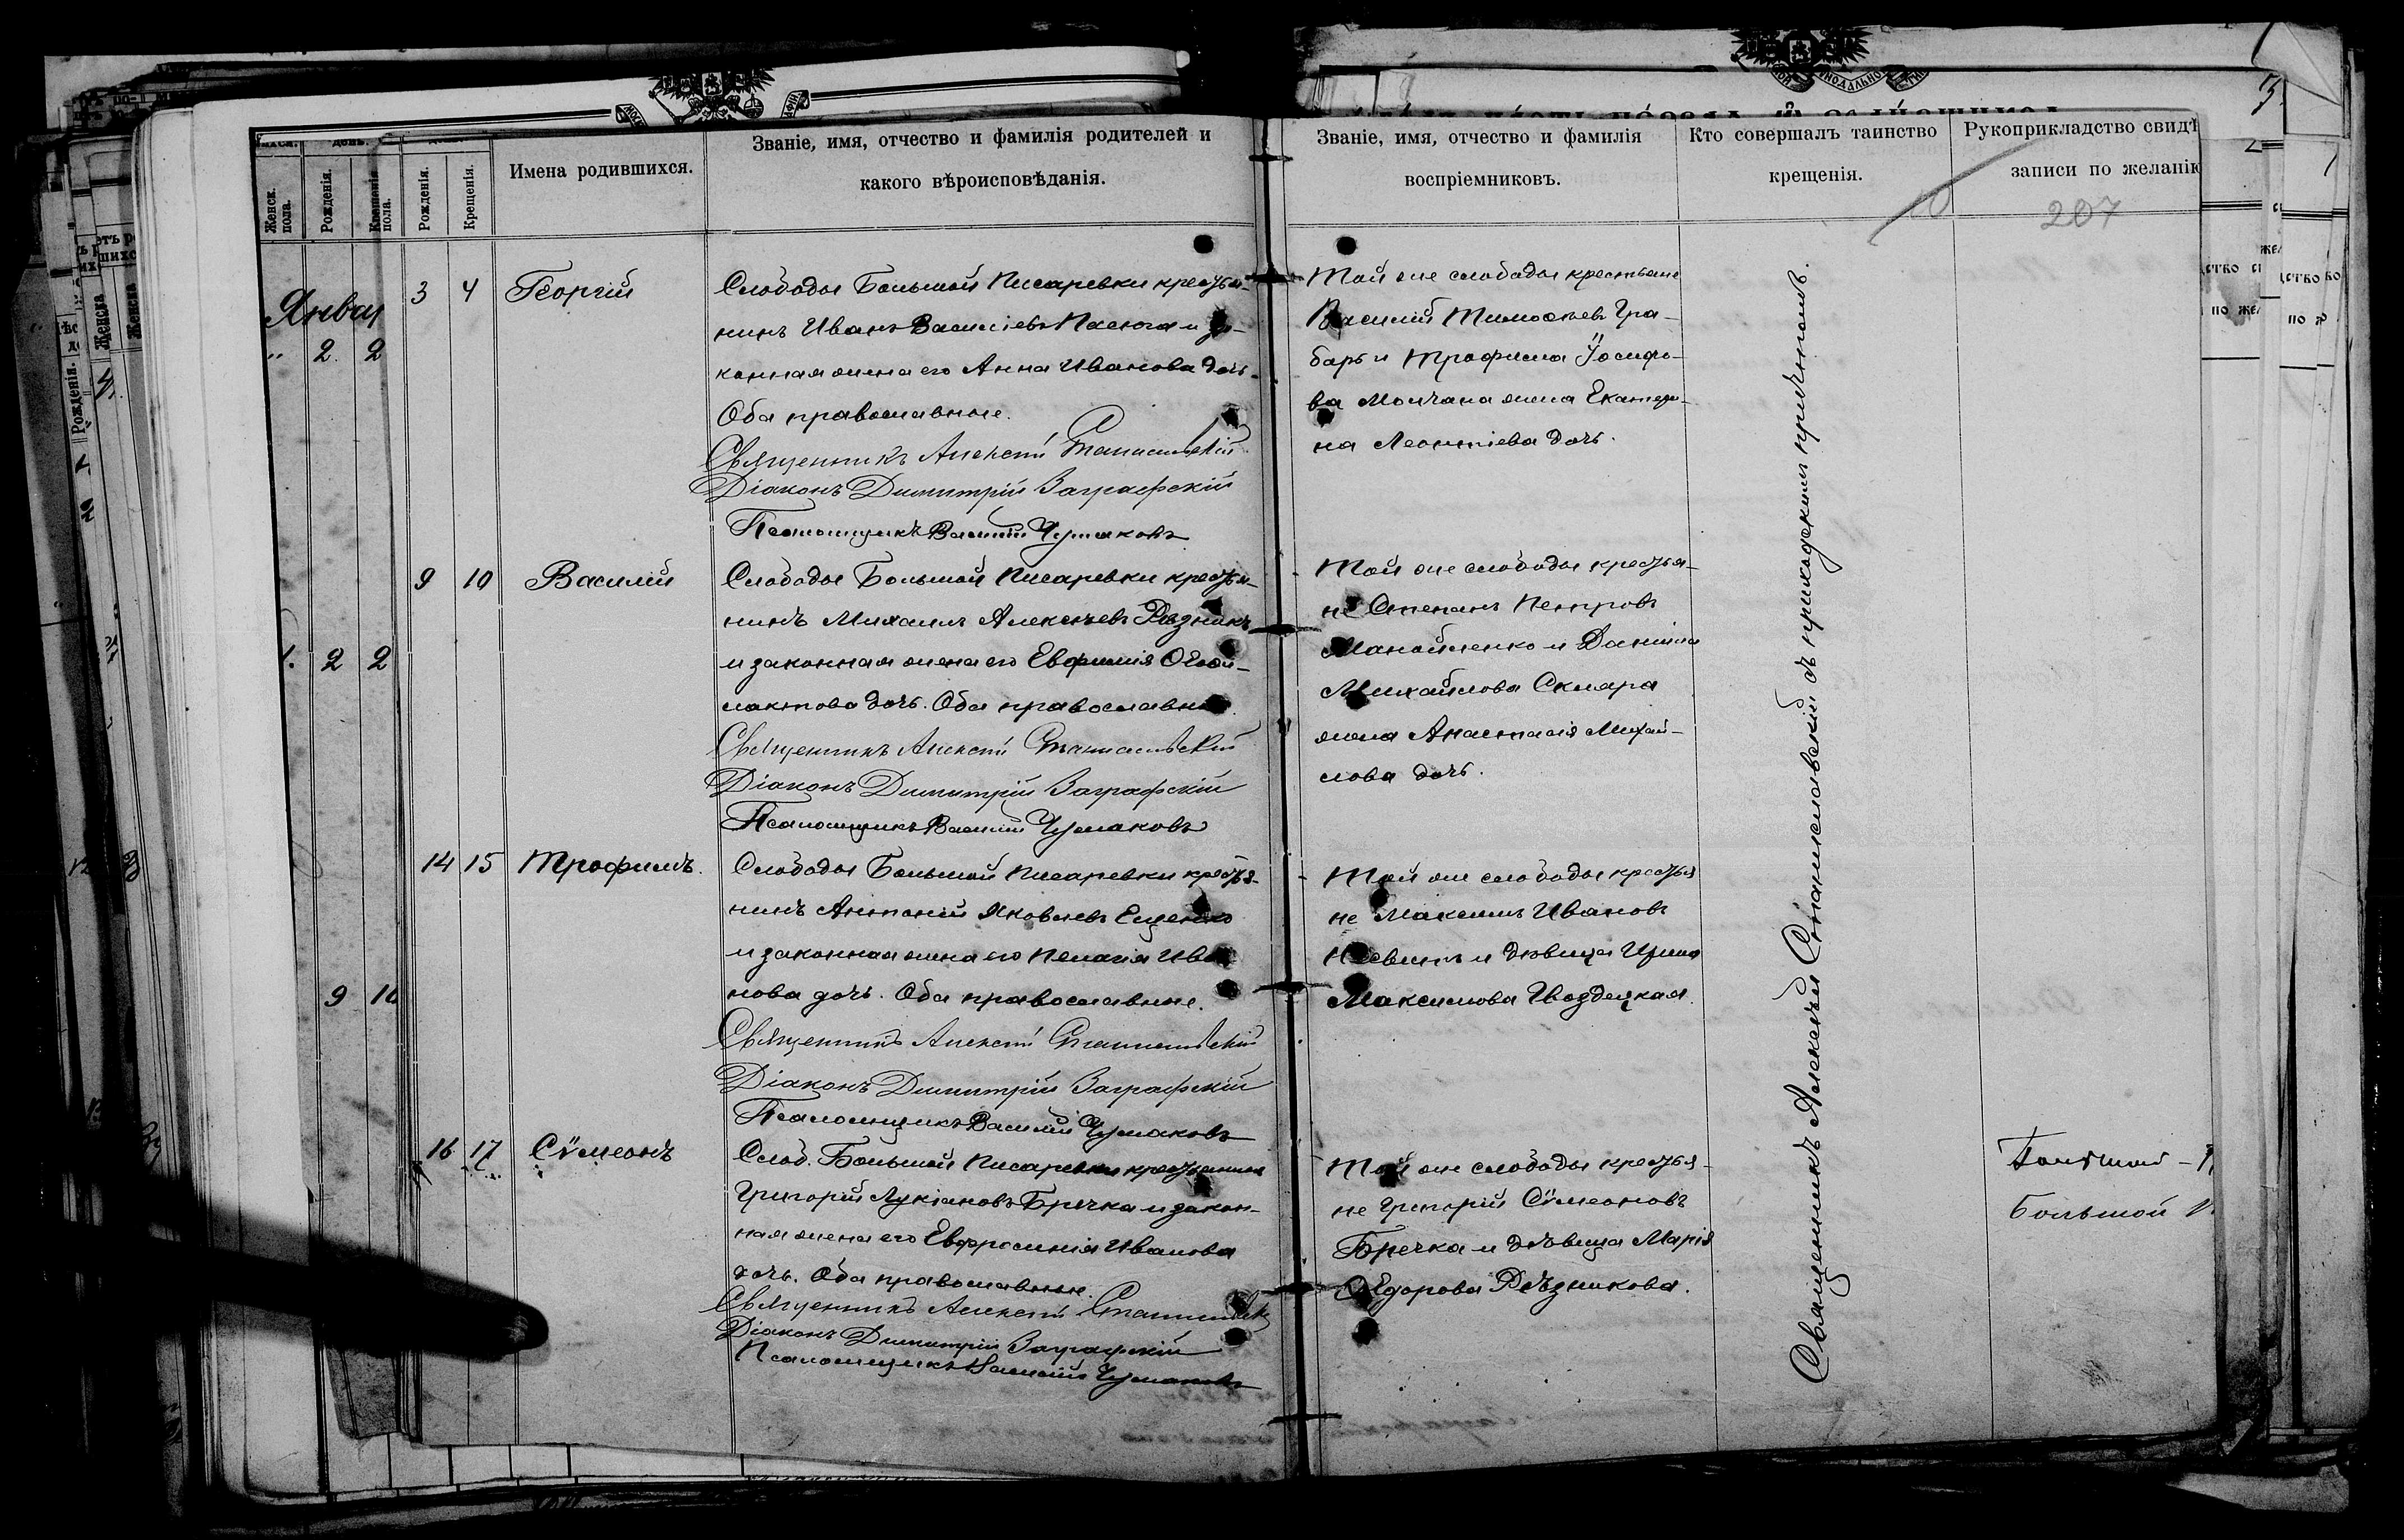 Имена родившихся.
Званіе, имя, отчество и фамилія родителей и
какого вѣроисповѣданія.
Званіе, имя, отчество и фамилія
воспріемниковъ.
Кто совершалъ таинство
крещенія.
Рукоприкладство свидѣ
записи по желанію
207
Женск.
пола.
Рожденія.
Крещенія
пола.
Рожденія.
Крещенія.
Январ
" 2. 2
2 2
9 10
3 4 Георгій
Слободы Большой Писаревки крестья-
нинъ Иванъ Василіевъ Пасюга и за-
конная жена его Анна Иванова дочь.
Оба православные.
Священникъ Алексій Станиславскій
Діаконъ Димитрій Заграфскій
Псаломщикъ Василій Чумаковъ
Той же слободы крестьяне
Василій Тимоѳеевъ Гра-
барь и Трофима Іосифо-
ва Молчана жена Екатери-
на Леонтіева дочь.
9 10 Василій
Слободы Большой Писаревки крестья-
нинъ Михаилъ Алексѣевъ Рѣзникъ
и законная жена его Евфимія Ѳеофи-
лактова дочь. Оба православные.
Священникъ Алексій Станиславскій
Діаконъ Димитрій Заграфскій
Псаломщикъ Василій Чумаковъ
Той же слободы крестья-
не Степанъ Петровъ
Манойленко и Даніила
Михайлова Скляра
жена Анастасія Михай-
лова дочь.
14 15 Трофимъ.
Слободы Большой Писаревки крестья-
нинъ Антоній Яковлевъ Ещенко
и законная жена его Пелагія Ива-
нова дочь. Оба православные.
Священникъ Алексій Станиславскій
Діаконъ Димитрій Заграфскій
Псаломщикъ Василій Чумаковъ
Той же слободы крестья
не Максимъ Ивановъ
и дѣвица Ирина
Максимова Гвоздецкая.
16 17 Сѵмеонъ
Слоб. Большой Писаревки крестьянинъ
Григорій Лукіановъ Бречка и закон-
ная жена его Евфросинія Иванова
дочь. Оба православные.
Священникъ Алексій
Діаконъ Димитрій Заграфскій
Псаломщикъ Василій Чумаковъ
Той же слободы крестья-
не Григорій Сѵмеоновъ
Бречка и дѣвица Марія
Ѳедорова Рѣзникова.
Священникъ Алексѣй Станиславскій съ приходскимъ причтомъ.
Большой